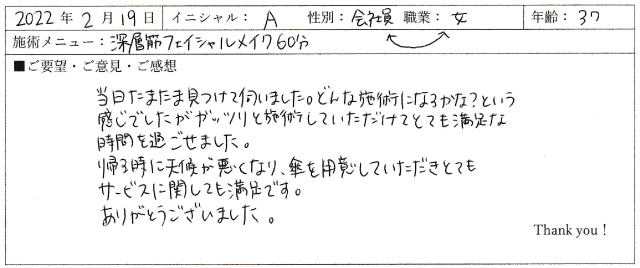 2022年2月19日 イニシャル： A 性別：会社員 職業：女 年齢：37
施術メニュー：深層筋フェイシャルメイク60分
■ご要望・ご意見・ご感想
当日たまたま見つけて伺いました。どんな施術になるかな？という
感じでしたがガッツリと施術していただけてとても満足な
時間を過ごせました。
帰る時に天候が悪くなり、傘を用意していただきとても
サービスに関しても満足です。
ありがとうございました。
Thank you！